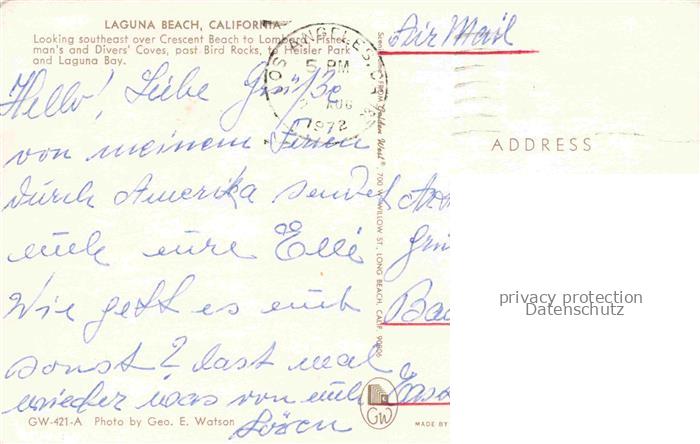 LAGUNA BEACH, CALIFORNIA
Looking southeast over Crescent Beach to Lombardi, Fisher-
man's and Divers' Coves, past Bird Rocks, to Heisler Park
and Laguna Bay.
LOS ANGELES, CA
5 PM
AUG
1972
Air Mail
ADDRESS
Hello! Liebe Grüße
von meinem Ferien
durch Amerika sendet
euch eure Elli
Wie geht es euch
sonst? Lasst mal
wieder was von euch
hören
700 W. WILLOW ST., LONG BEACH, CALIF. 90806
privacy protection
Datenschutz
GW-421-A Photo by Geo. E. Watson
GW
MADE BY